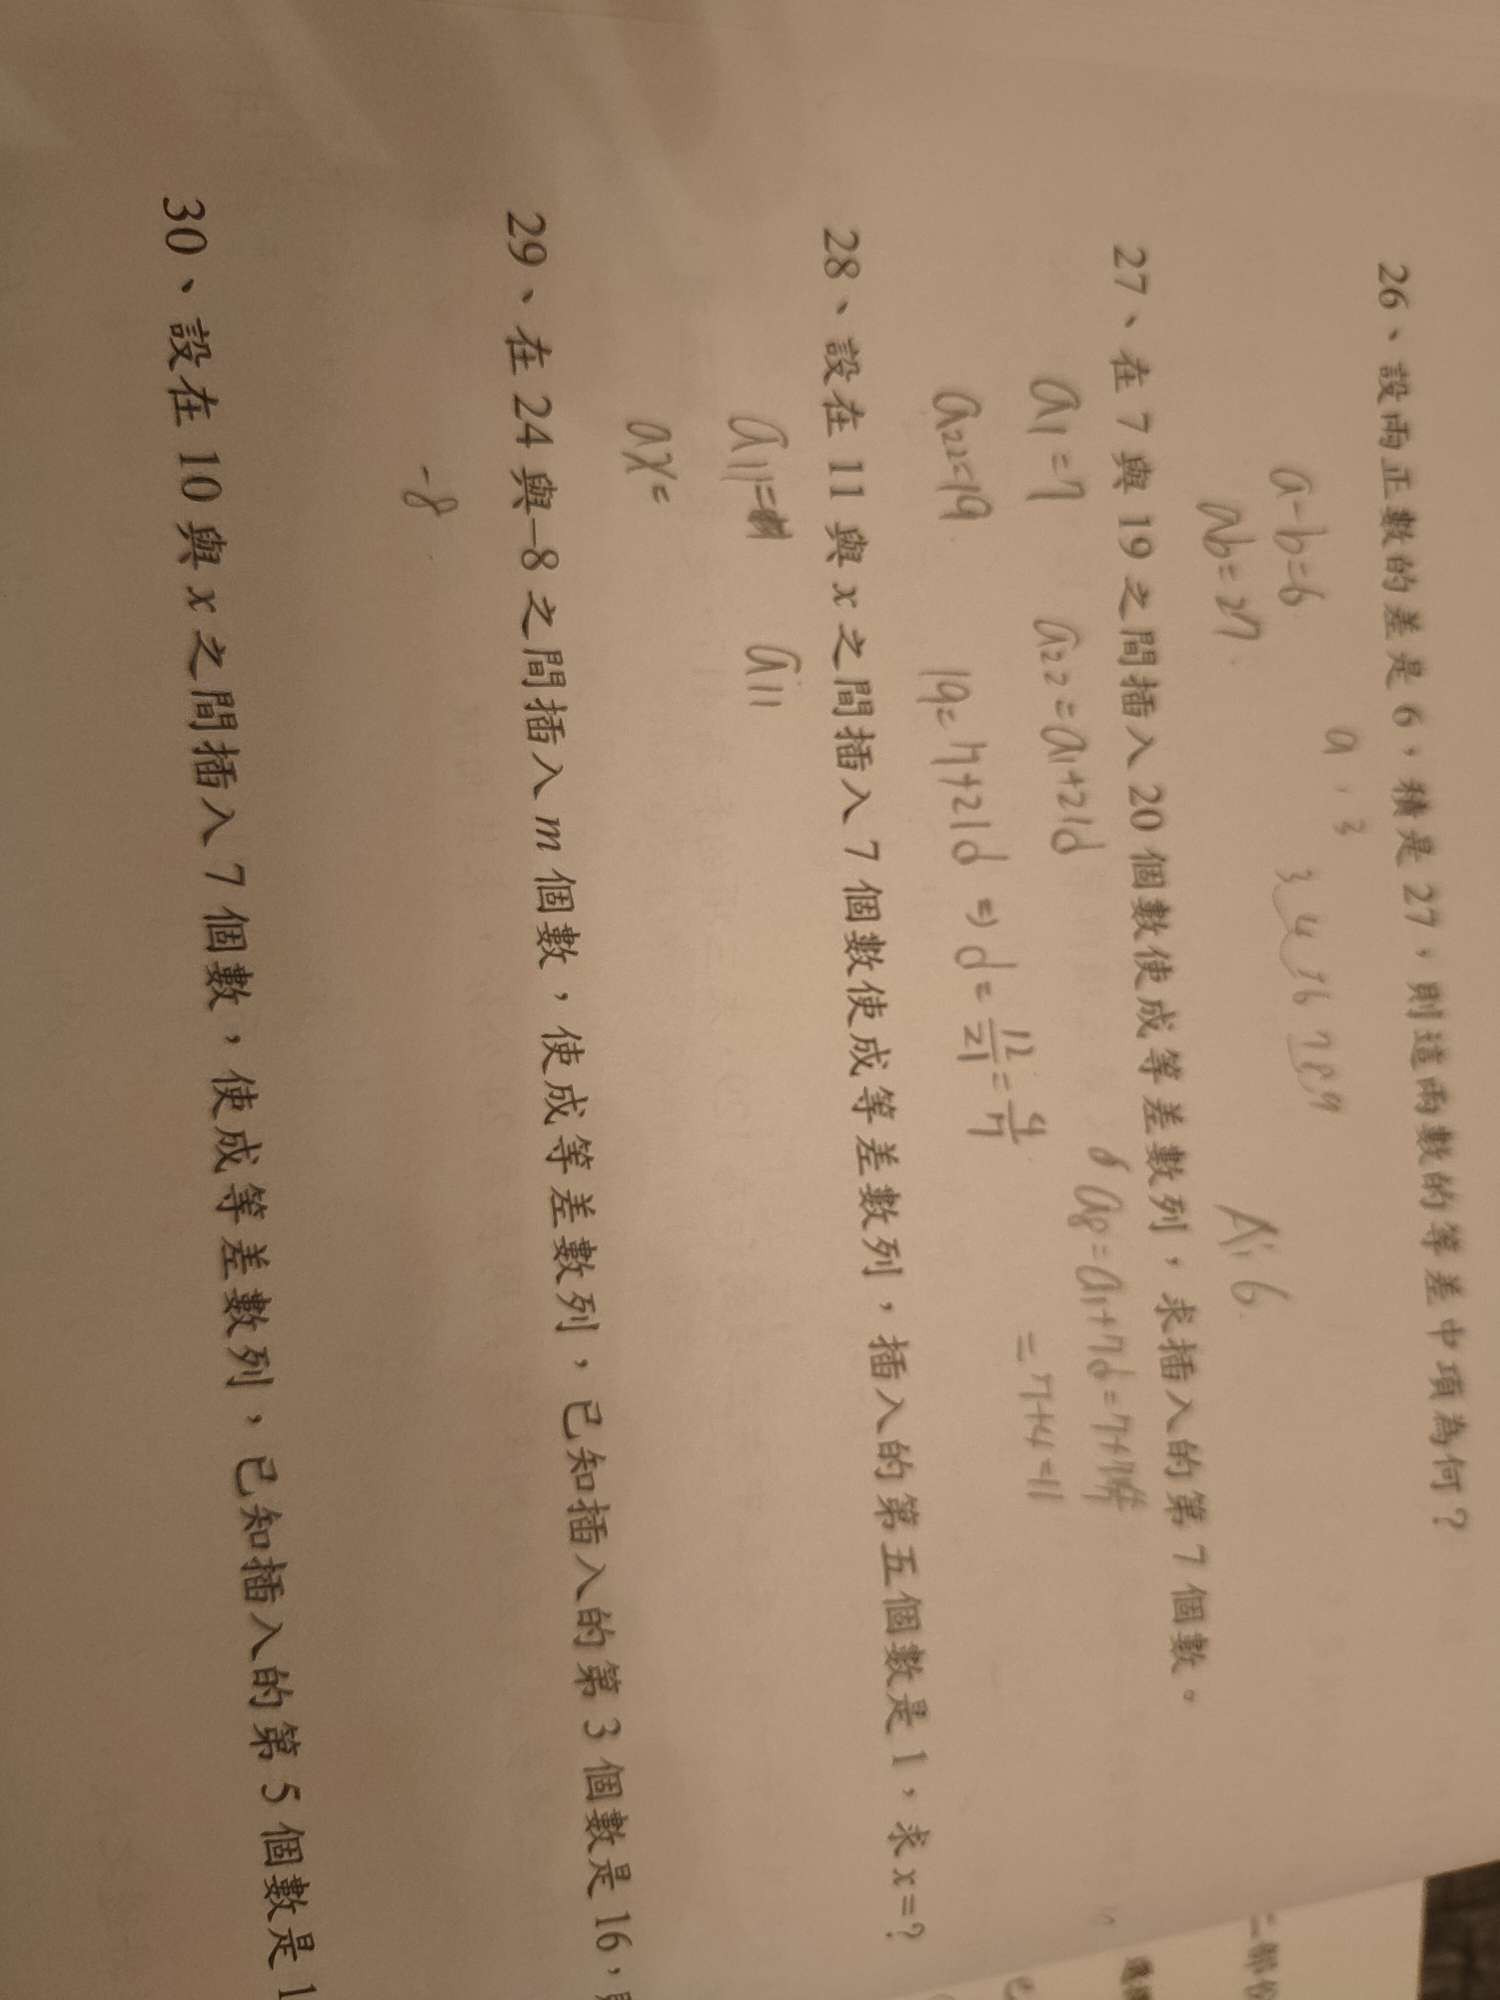 26、設兩正數的差是6，積是27，則這兩數的等差中項為何？
a , 3
a-b=6
ab=27
A: 6
27、在7與19之間插入20個數使成等差數列，求插入的第7個數。
a1=7
a22=a1+21d
a8=a1+7d=7+7
=7+4=11
a22=19
19=7+21d ⇒ d=12/21=4/7
28、設在11與x之間插入7個數使成等差數列，插入的第五個數是1，求x=?
a11=
a11
ax=
29、在24與–8之間插入m個數，使成等差數列，已知插入的第3個數是16，
-8
30、設在10與x之間插入7個數，使成等差數列，已知插入的第5個數是1
二部份